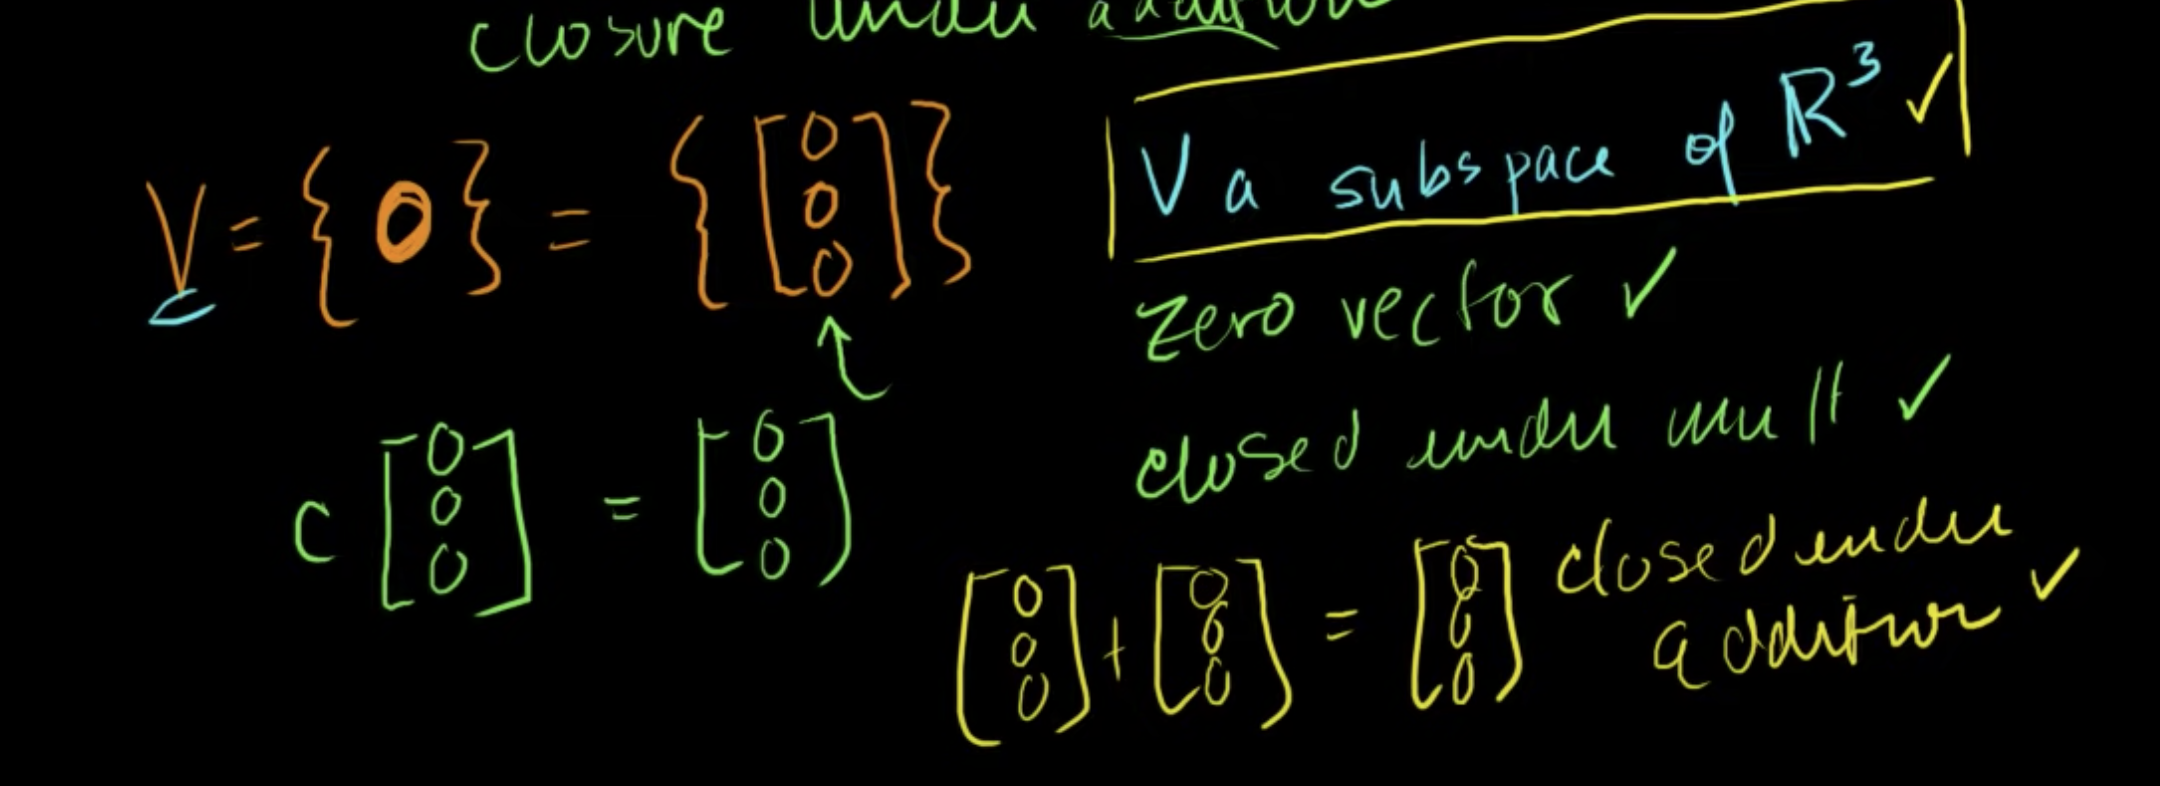 closure under addition
V = { 0 } = { [0 0 0] }
V a subspace of R³ ✓
zero vector ✓
c [0 0 0] = [0 0 0]
closed under mult ✓
[0 0 0] + [0 0 0] = [0 0 0]
closed under
addition ✓